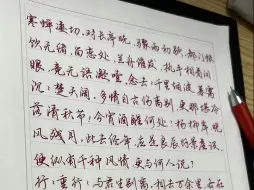 寒蝉凄切,对长亭晚,骤雨初歇,都门帐
饮无绪,留恋处,兰舟催发,执手相看泪
眼,竟无语凝噎,念去去,千里烟波,暮霭
沉沉楚天阔,多情自古伤离别,更那堪冷
落清秋节,今宵酒醒何处?杨柳岸,晓
风残月,此去经年,应是良辰好景虚设,
便纵有千种风情,更与何人说?
行行重行行,与君生别离,相去万余里,各在